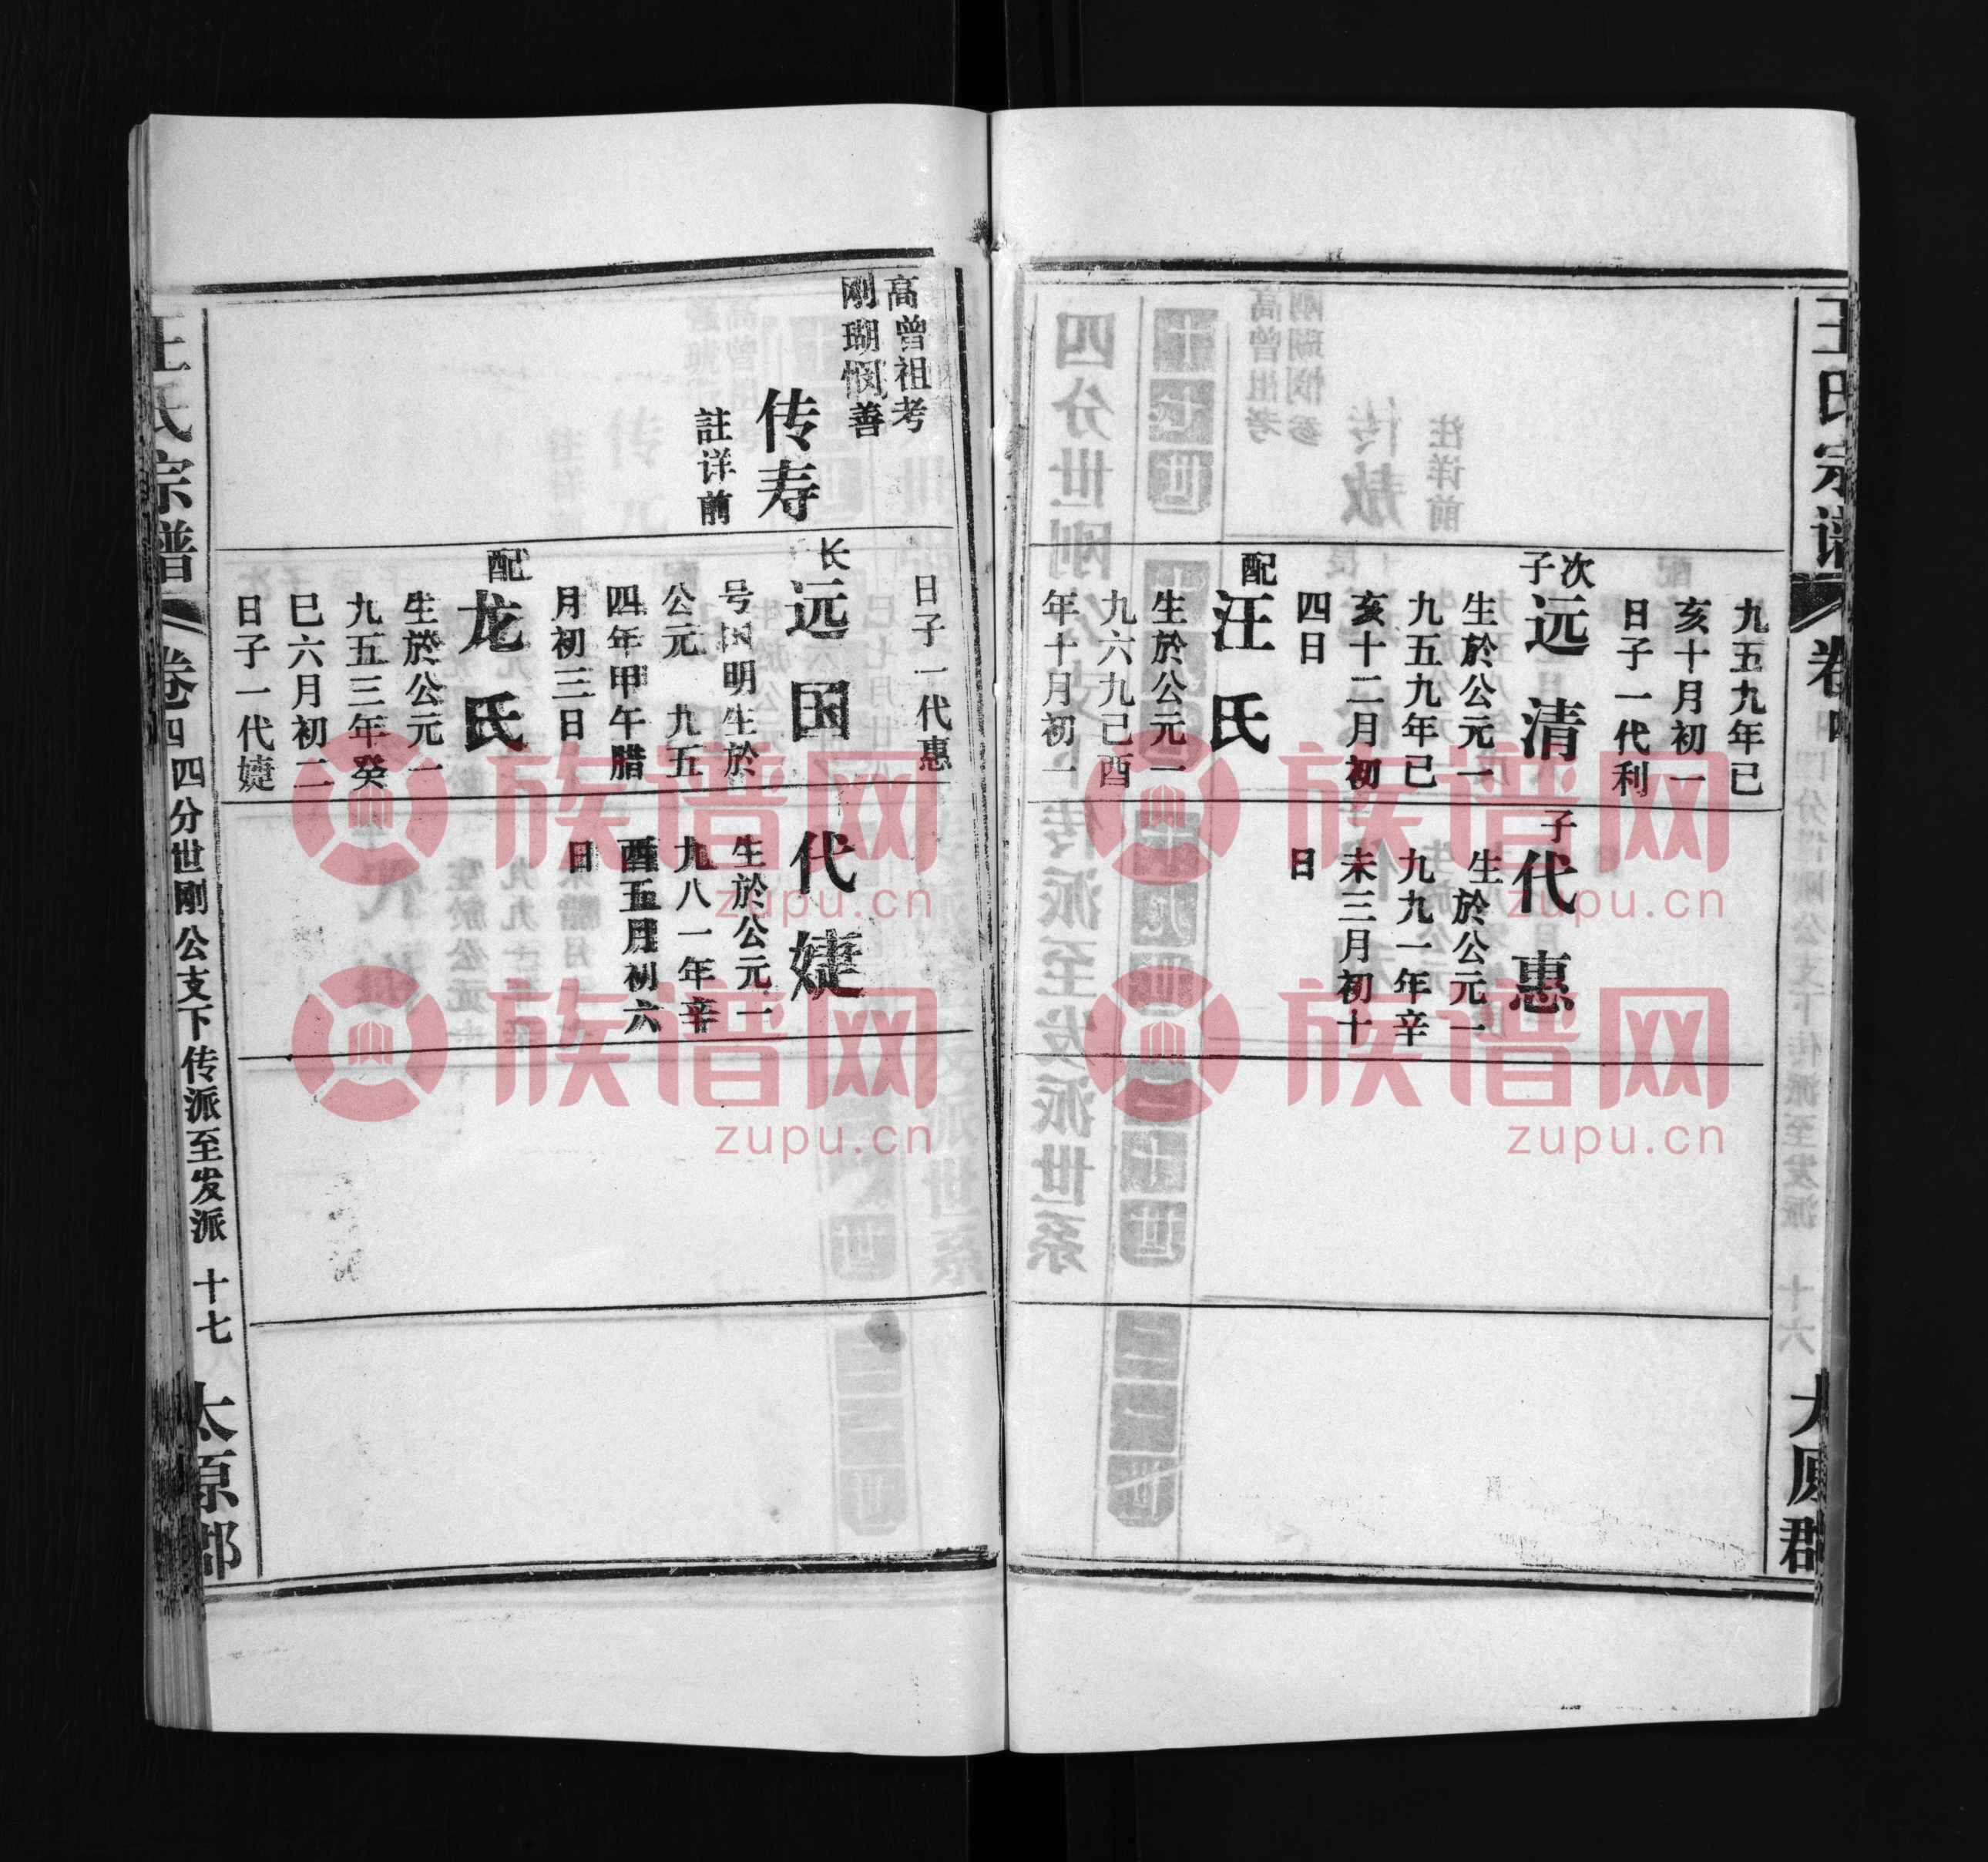 王氏宗谱 卷四
太原郡
九五九年己
亥十月初一
日子一代利
次子
远清
生於公元一
九五九年已
亥十二月初
四日
配
汪氏
生於公元一
九六九己酉
年十月初一
子
代惠
生於公元一
九九一年辛
未三月初十
日
日子一代惠
高曾祖考
刚瑚悯善
传寿
註详前
长
远国
号国明生於
公元一九五
四年甲午腊
月初三日
配
龙氏
生於公元一
九五三年癸
巳六月初二
日子一代婕
代婕
生於公元一
九八一年辛
酉五月初六
日
王氏宗谱 卷四
四分世刚公支下传派至发派 十七
太原郡
族谱网
zupu.cn
族谱网
zupu.cn
族谱网
zupu.cn
族谱网
zupu.cn